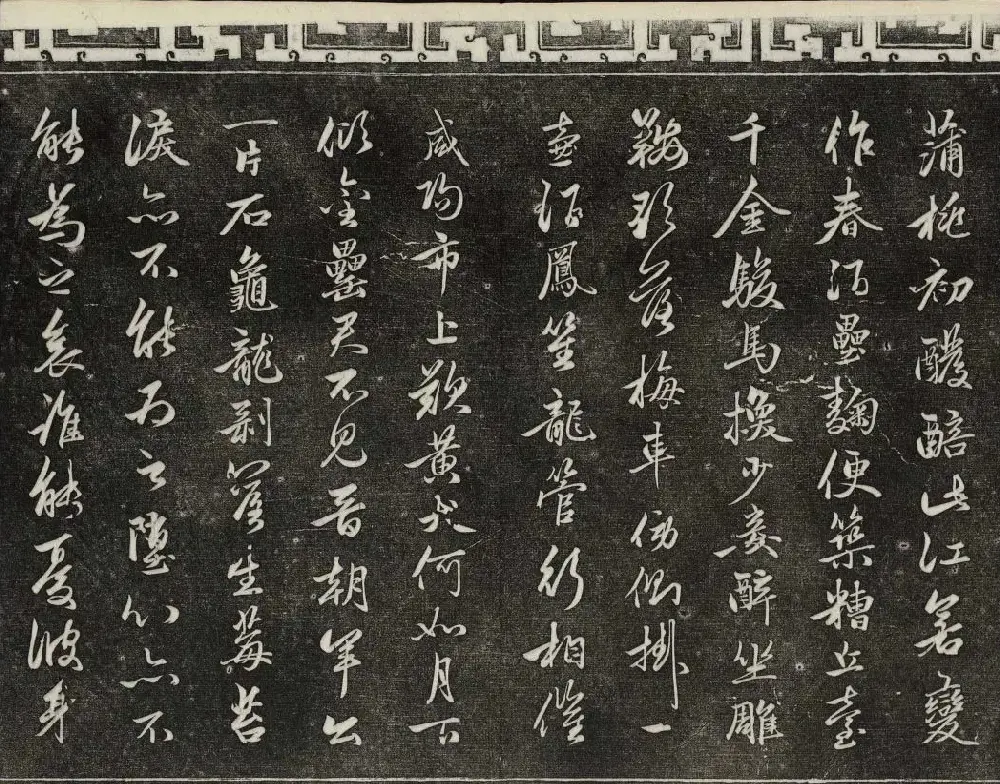 蒲桃初醱醅此江若變
作春酒壘麴便築糟丘臺
千金駿馬換少妾醉坐雕
鞍歌落梅車傍側掛一
壺酒鳳笙龍管行相催
咸陽市上歎黃犬何如月下
傾金罍君不見晉朝羊公
一片石龜龍剝落生莓苔
淚亦不能為之墮心亦不
能為之哀誰能憂彼身